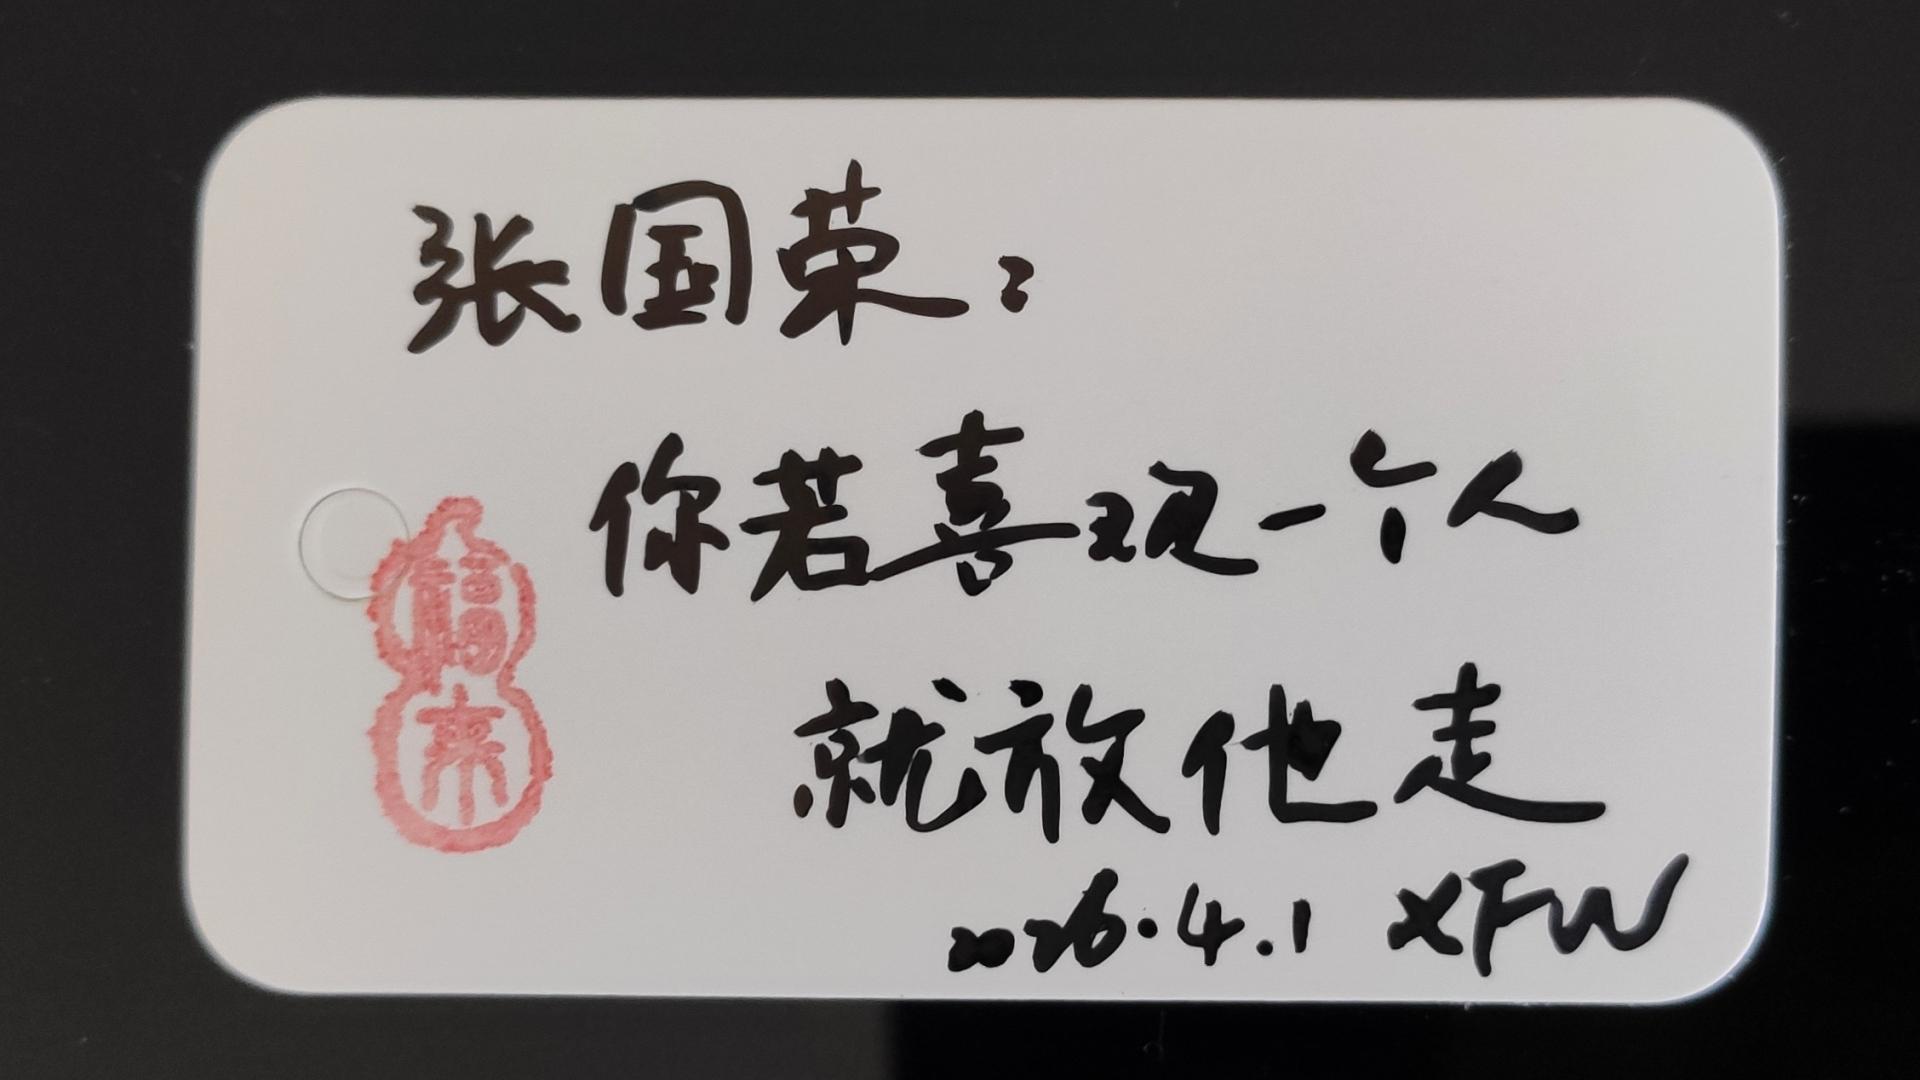 张国荣:
你若喜欢一个人
就放他走
2026.4.1 XFW
福来